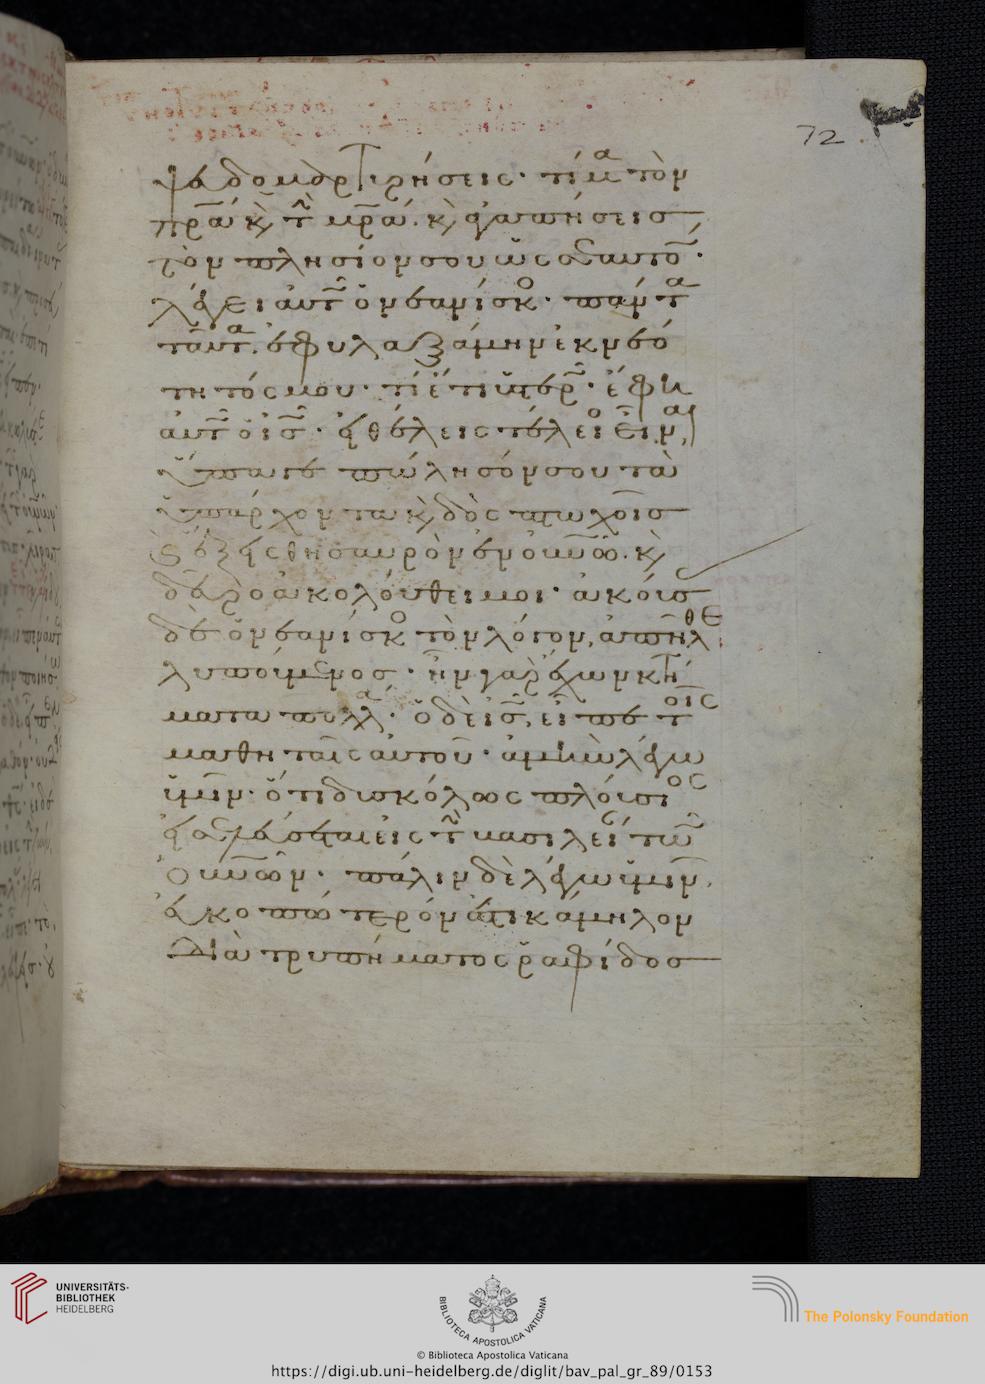 72
ψευδομαρτυρήσεις· τίμα τὸν
πρα κ(αὶ) τὴν μρα· κ(αὶ) ἀγαπήσεισ
τὸν πλησίον σου ὡς σεαυτόν·
λέγει αὐτῶ ὁ νεανίσκος· πάντα
ταῦτα ἐφυλαξάμην ἐκ νεό
τητός μου· τί ἔτι ὑστερῶ· ἔφη
αὐτῶ ὁ ισ· εἰ θέλεις τέλειος εἶναι,
ὕπαγε πώλησόν σου τὰ
ὑπάρχοντα κ(αὶ) δὸς πτωχοῖσ
κ(αὶ) ἕξεις θησαυρὸν ἐν οὐνῶ· κ(αὶ)
δεῦρο ἀκολούθει μοι· ἀκούσ
δὲ ὁ νεανίσκος τὸν λόγον, ἀπῆλθε
λυπούμενος· ἦν γὰρ ἔχων κτή
ματα πολλά· ὁ δὲ ισ, εἶπε τοῖς
μαθηταῖς αὐτοῦ· ἀμὴν λέγω
ὑμῖν· ὅτι δυσκόλως πλούσιος
εἰσελεύσεται εἰς τὴν βασιλείαν τῶν
οὐνῶν· πάλιν δὲ λέγω ὑμῖν,
εὐκοπώτερόν ἐστι κάμηλον
διὰ τρυπήματος ῥαφίδοσ
UNIVERSITÄTS-
BIBLIOTHEK
HEIDELBERG
BIBLIOTECA APOSTOLICA VATICANA
The Polonsky Foundation
© Biblioteca Apostolica Vaticana
https://digi.ub.uni-heidelberg.de/diglit/bav_pal_gr_89/0153